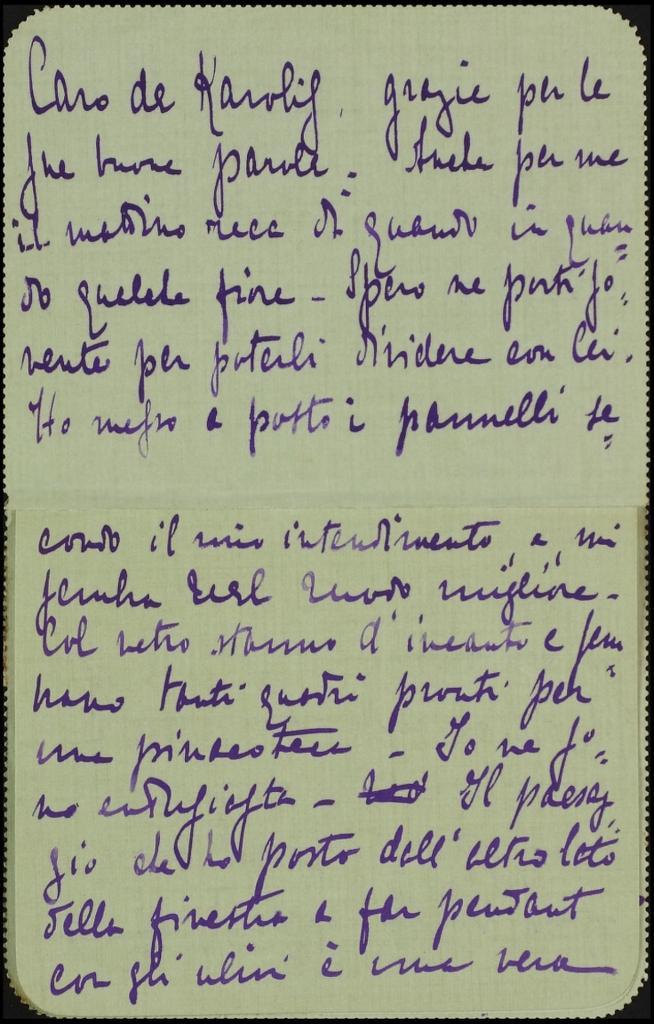 Caro de Karolis, grazie per le
sue buone parole. Anche per me
il mattino reca di quando in quan=
do qualche fiore - Spero ne porti so=
vente per poterli dividere con lei.
Ho messo a posto i pannelli se=
condo il mio intendimento, e, mi
sembra nel modo migliore -
Col vetro stanno d'incanto e sem=
brano tanti quadri pronti per
una pinacoteca - Io ne so=
no entusiasta - Il paesag=
gio che ho posto dall'altro lato
della finestra a far pendant
con gli ulivi è una vera